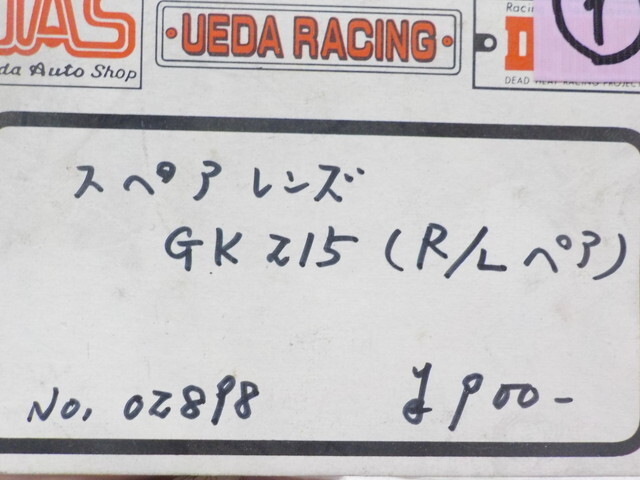 UAS
da Auto Shop
UEDA RACING
Racin
D
DEAD HEAT RACING PROJEC
1
スペアレンズ
GK215 (R/Lペア)
No. 02898
¥900-